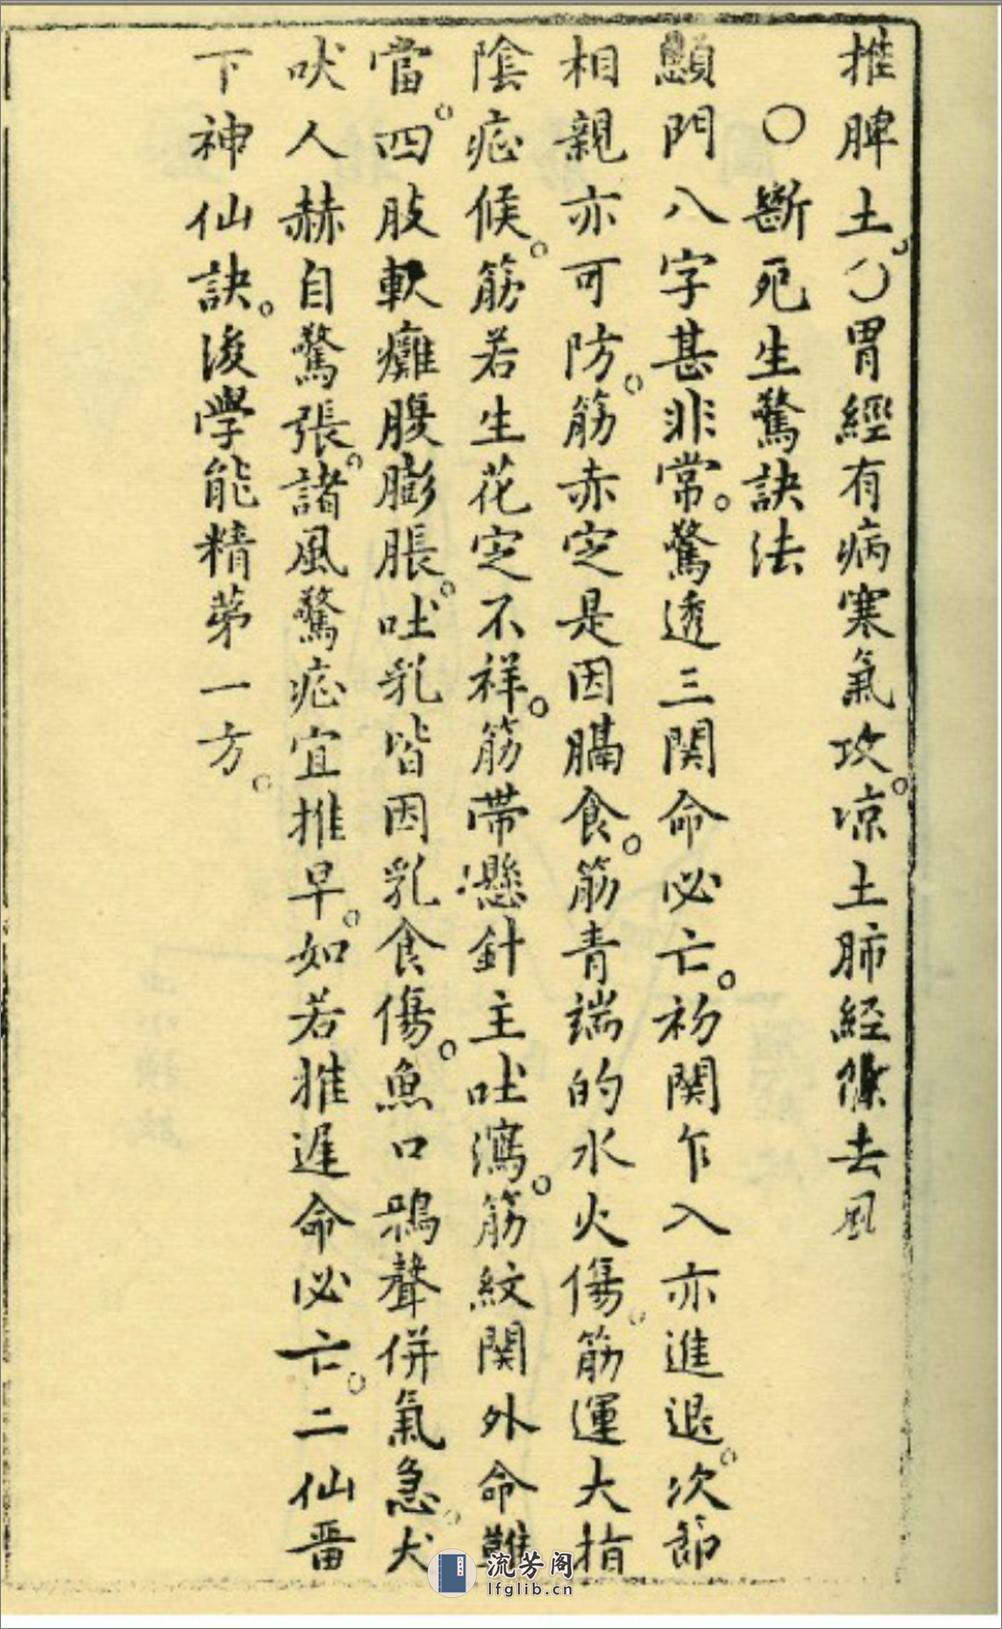 推脾土。〇胃經有病寒氣攻。凉土肺經條去風
〇斷死生驚訣法
顖門八字甚非常。驚透三関命必亡。初関乍入亦進退。次節
相親亦可防。筋赤定是因膈食。筋青端的水火傷。筋運大指
陰症候。筋若生花定不祥。筋帶懸針主吐瀉。筋紋関外命難
當。四肢軟癱腹膨脹。吐乳皆因乳食傷。魚口鴉聲併氣急。犬
吠人赫自驚張。諸風驚症宜推早。如若推遲命必亡。二仙畱
下神仙訣。後學能精第一方。
流芳阁
lfglib.cn